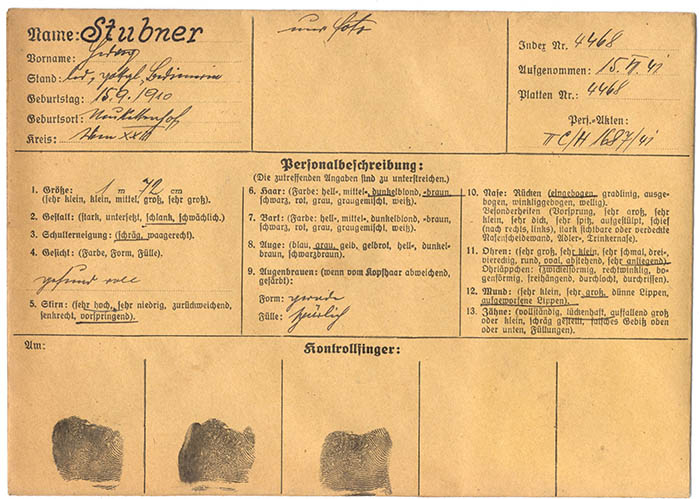 Name: Stubner
Vorname: Hedwig
Stand: led., gottgl., Bedienerin
Geburtstag: 15.9.1910
Geburtsort: Neukettenhof
Kreis: Wien XXIII
nur Foto
Index Nr. 4468
Aufgenommen: 15. VI. 41
Platten Nr.: 4468
Pers.-Akten:
II C/H 1687/41
Personalbeschreibung:
(Die zutreffenden Angaben sind zu unterstreichen.)
1. Größe: 1 m 72 cm
(sehr klein, klein, mittel, groß, sehr groß).
2. Gestalt: (stark, untersetzt, schlank, schwächlich.)
3. Schulterneigung: (schräg, waagerecht).
4. Gesicht: (Farbe, Form, Fülle).
gesund voll
5. Stirn: (sehr hoch, sehr niedrig, zurückweichend,
senkrecht, vorspringend).
6. Haar: (Farbe: hell-, mittel-, dunkelblond, -braun,
schwarz, rot, grau, graugemischt, weiß).
7. Bart: (Farbe: hell-, mittel-, dunkelblond, -braun,
schwarz, rot, grau, graugemischt, weiß).
8. Auge: (blau, grau, gelb, gelbrot, hell-, dunkel-
braun, schwarzbraun).
9. Augenbrauen: (wenn vom Kopfhaar abweichend,
gefärbt):
Form: gerade
Fülle: spärlich
10. Nase: Rücken (eingebogen, gradlinig, ausge-
bogen, winkliggebogen, wellig).
Besonderheiten (Vorsprung, sehr groß, sehr
klein, sehr dick, sehr spitz, aufgestülpt, schief
(nach rechts, links), stark sichtbare oder verdeckte
Nasenscheidewand, Adler-, Trinkernase).
11. Ohren: (sehr groß, sehr klein, sehr schmal, drei-
viereckig, rund, oval, abstehend, sehr anliegend).
Ohrläppchen: (zwickelförmig, rechtwinklig, bo-
genförmig, freihängend, durchlocht, durchrissen).
12. Mund: (sehr klein, sehr groß, dünne Lippen,
aufgeworfene Lippen).
13. Zähne: (vollständig, lückenhaft, auffallend groß
oder klein, schräg gestellt, falsches Gebiß oben
oder unten, Füllungen).
Am:
Kontrollfinger: